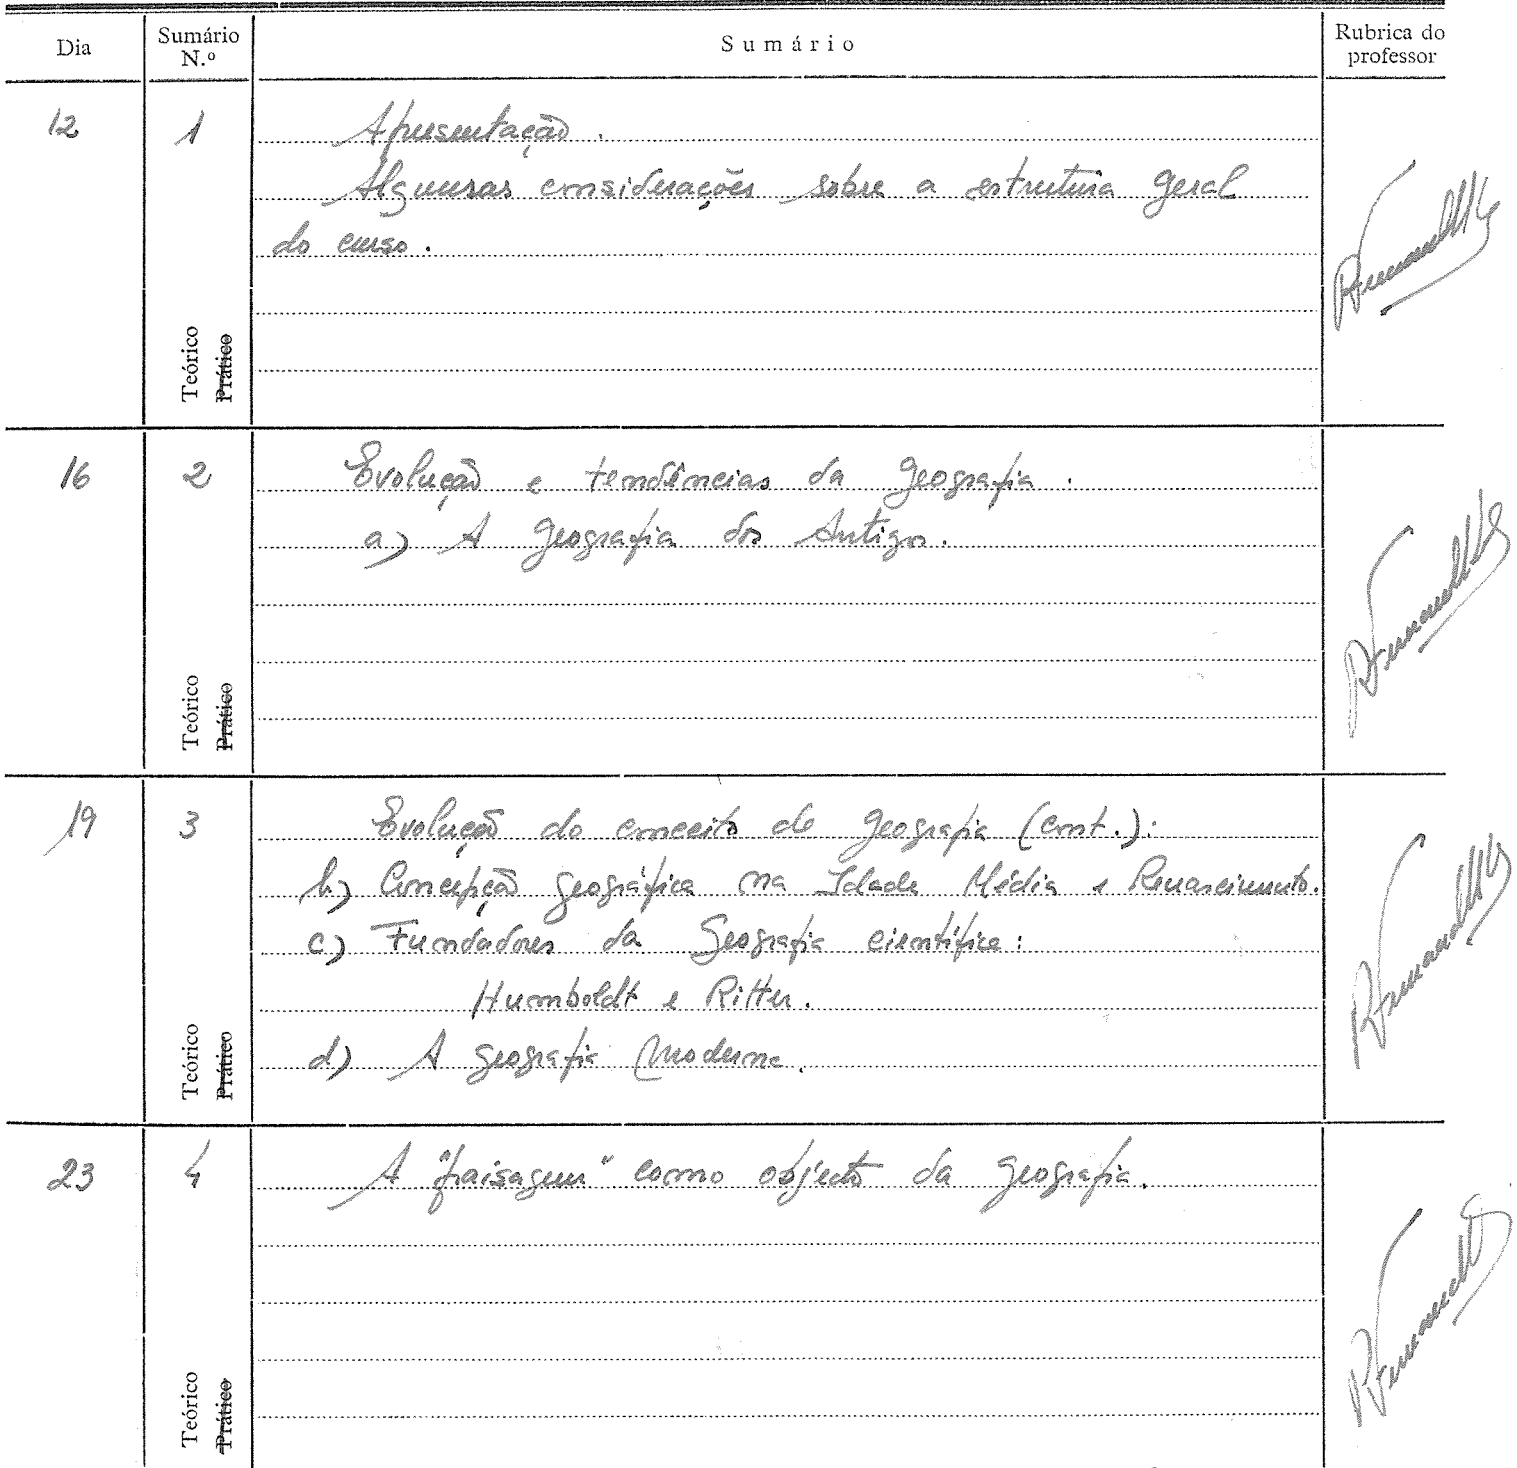 Dia
Sumário N.º
Sumário
Rubrica do professor
12
1
Apresentação.
Algumas considerações sobre a estrutura geral
do curso.
Teórico
Prático
16
2
Evolução e tendências da geografia.
a) A geografia dos Antigos.
Teórico
Prático
19
3
Evolução do conceito de geografia (cont.):
b) Concepção geográfica na Idade Média e Renascimento.
c) Fundadores da Geografia científica:
Humboldt e Ritter.
d) A geografia moderna.
Teórico
Prático
23
4
A "paisagem" como objecto da geografia.
Teórico
Prático